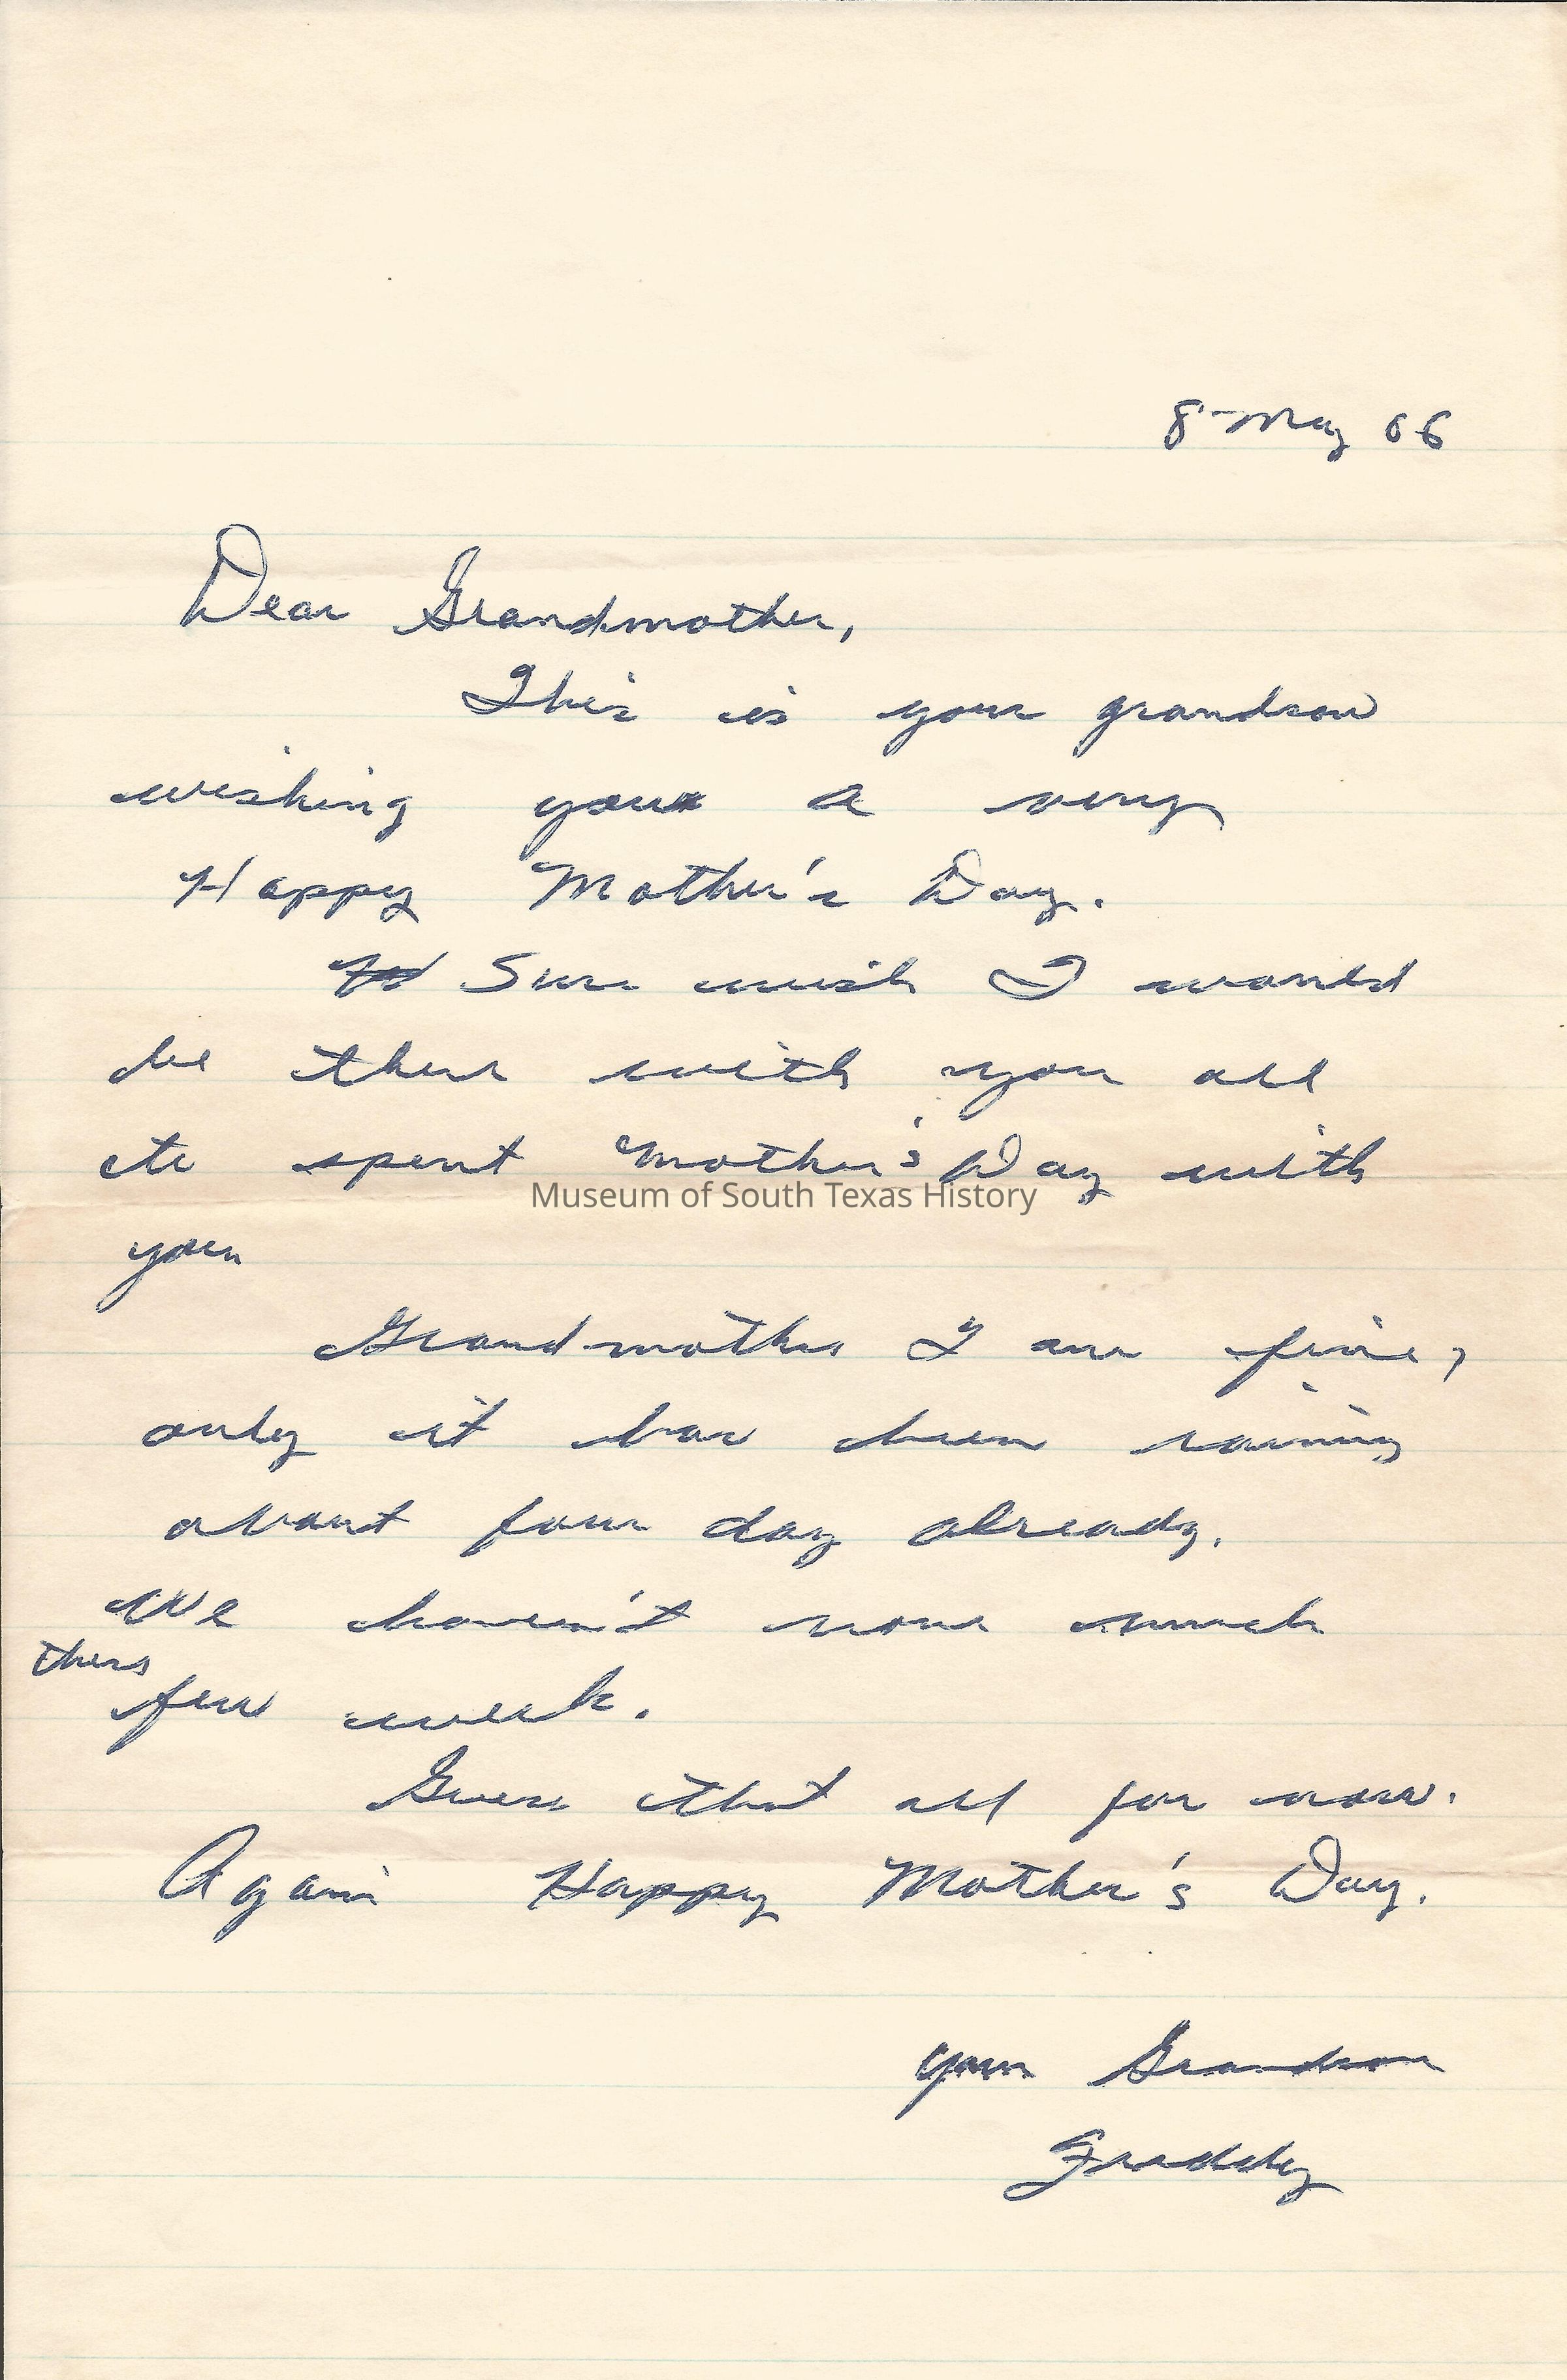 8 May 66
Dear Grandmother,
This is your grandson
wishing you a very
Happy Mother's Day.
Sure wish I would
be there with you all
to spent Mother's Day with
Museum of South Texas History
you
Grandmother I am fine,
only it has been raining
about four day already.
We haven't done much
thes
few week.
Guess that all for now.
Again Happy Mother's Day.
your Grandson
Freddy